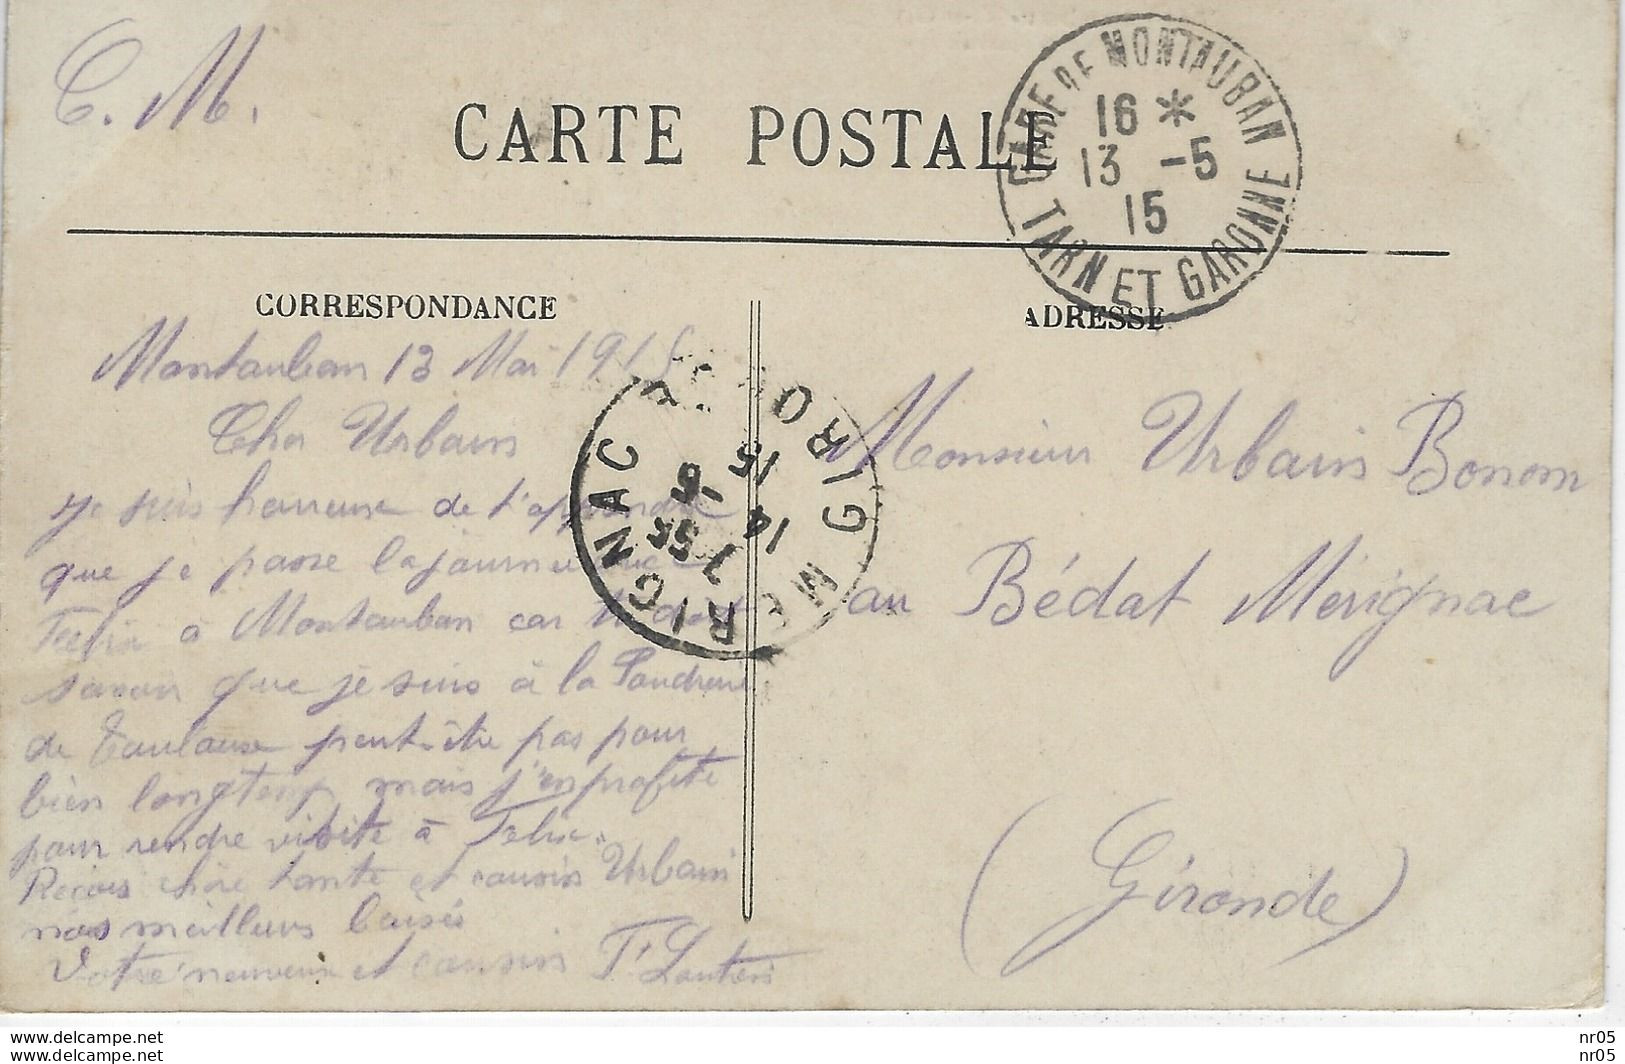 C. M.
CARTE POSTALE
GARE DE MONTAUBAN
16 *
13 -5
15
TARN ET GARONNE
CORRESPONDANCE
ADRESSE
Montauban 13 Mai 1915
Cher Urbain
je suis heureuse de t'apprendre
que je passe la journée avec
Felix à Montauban car tu dois
savoir que je suis à la Poudrerie
de Toulouse peut-être pas pour
bien longtemp mais j'en profite
pour rendre visite à Felix.
Reçois chère tante et cousin Urbain
nos meilleurs baisés
Votre neuveux et cousin
MERIGNAC GIRONDE
7 55
14 -5
15
Monsieur Urbain Bonom
au Bédat Mérignac
(Gironde)
www.delcampe.net
www.delcampe.net
nr05
nr05